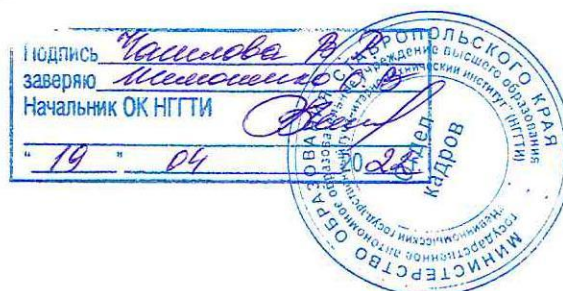 Подпись
заверяю
Начальник ОК НГГТИ
" 19 " 04 2022
МИНИСТЕРСТВО ОБРАЗОВАНИЯ СТАВРОПОЛЬСКОГО КРАЯ
Государственное автономное образовательное учреждение высшего образования
"Невинномысский государственный гуманитарно-технический институт" (НГГТИ)
Отдел
кадров